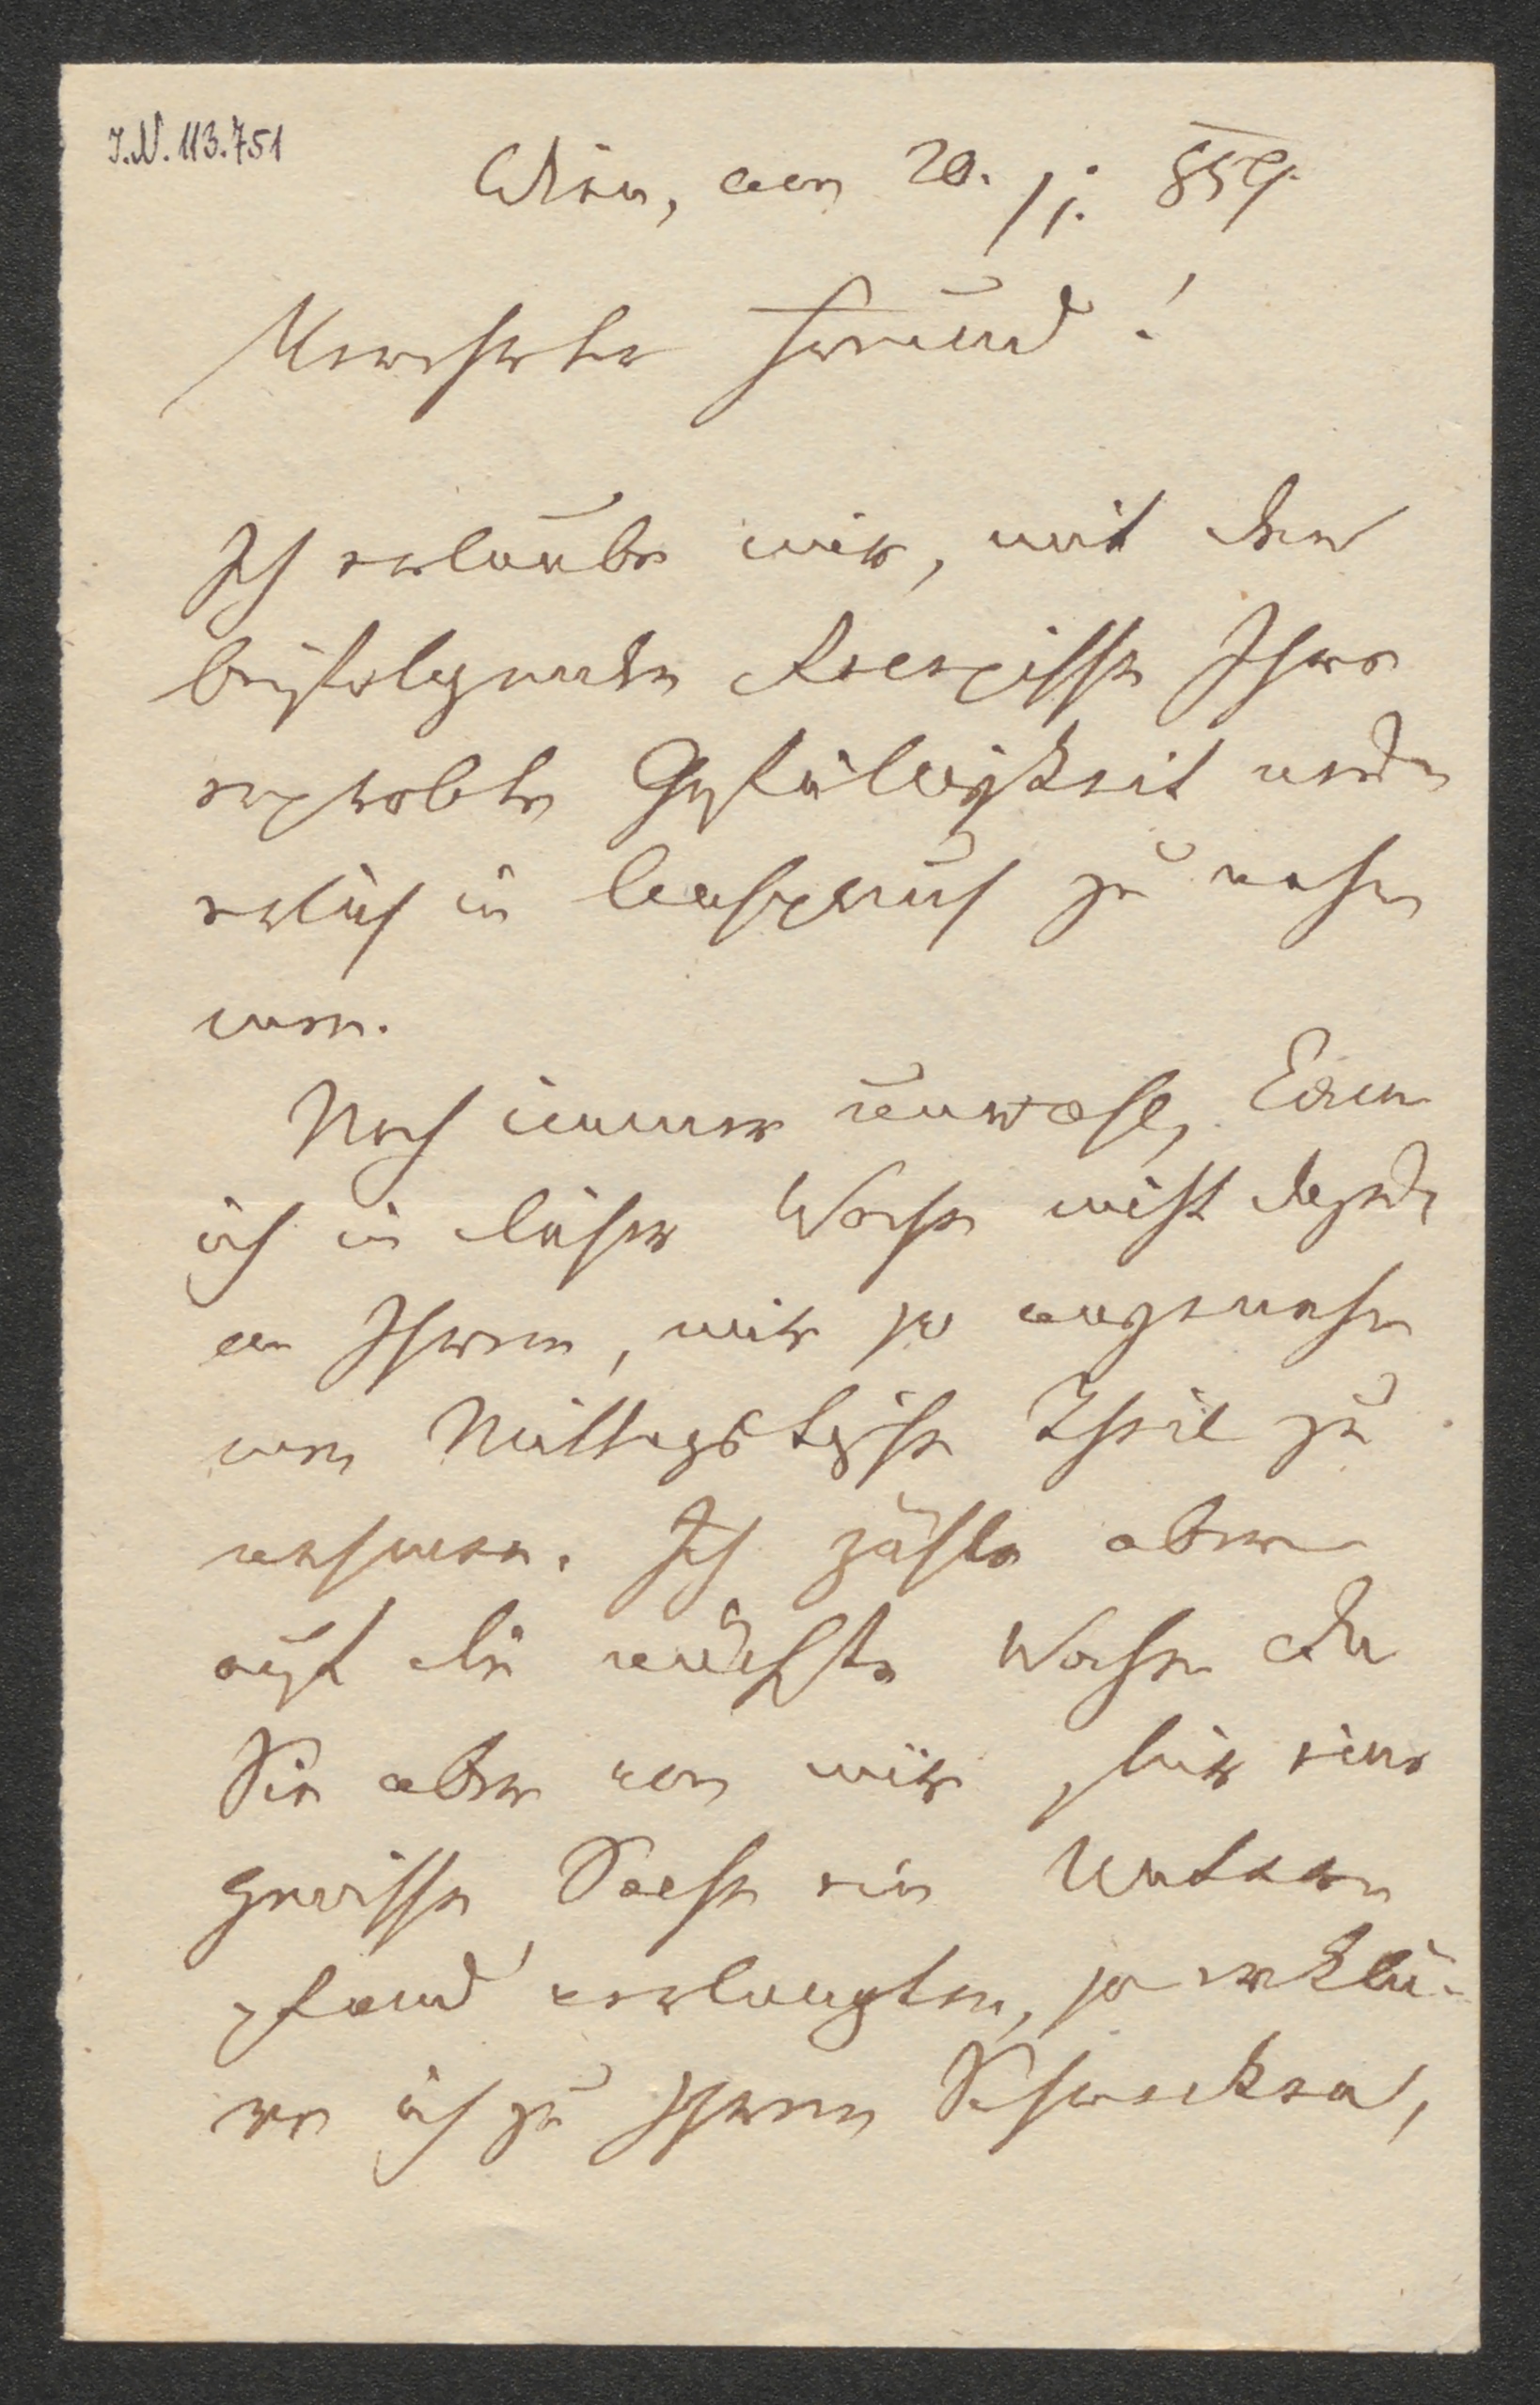 I.N. 113.751
Wien, am 20. /1. 859.
Verehrter Freund!
Ich erlaube mir, mit der
beyfolgenden Ihre
erprobte Gefälligkeit
in Anspruch zu neh
men.
Noch immer unwohl, kann
ich in dieser Woche nicht
an Ihrem, mir so angeneh
men Mittagstische Theil zu
nehmen. Ich zähle aber
auf die nächste Woche Da
Sie aber von mir für eine
gewisse Sache ein Unter
pfand verlangten, so erklä-
re ich zu Ihrem